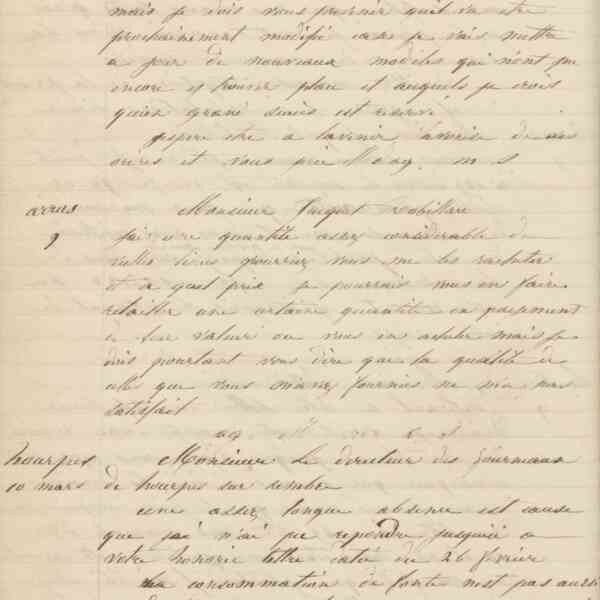 mais je dois vous prévenir quil va etre
prochainement modifié car je vais mettre
a jour de nouveaux modèles qui nont pu
encore y trouver place et auquels je crois
quun grand succès est réservé
jespere etre a lavenir favorisé de vos
ordres et vous prie Mr ag. m s
arras
9
Monsieur Jacquet Robillard
jai une quantité assez considérable de
vielles limes pourriez vous me les racheter
et a quel prix je pourrais vous en faire
retailler une certaine quantité en payement
de leur valeur ou vous en acheter mais je
dois pourtant vous dire que la qualité de
celles que vous mavez fournies ne ma pas
satisfait
ag
hourpes
10 mars
Monsieur Le directeur des fourneaux
de hourpes sur sembre
une assez longue absence est cause
que jai n'ai pu repondre jusquici a
votre honorée lettre datée du 26 février
La consommation de fonte nest pas aussi